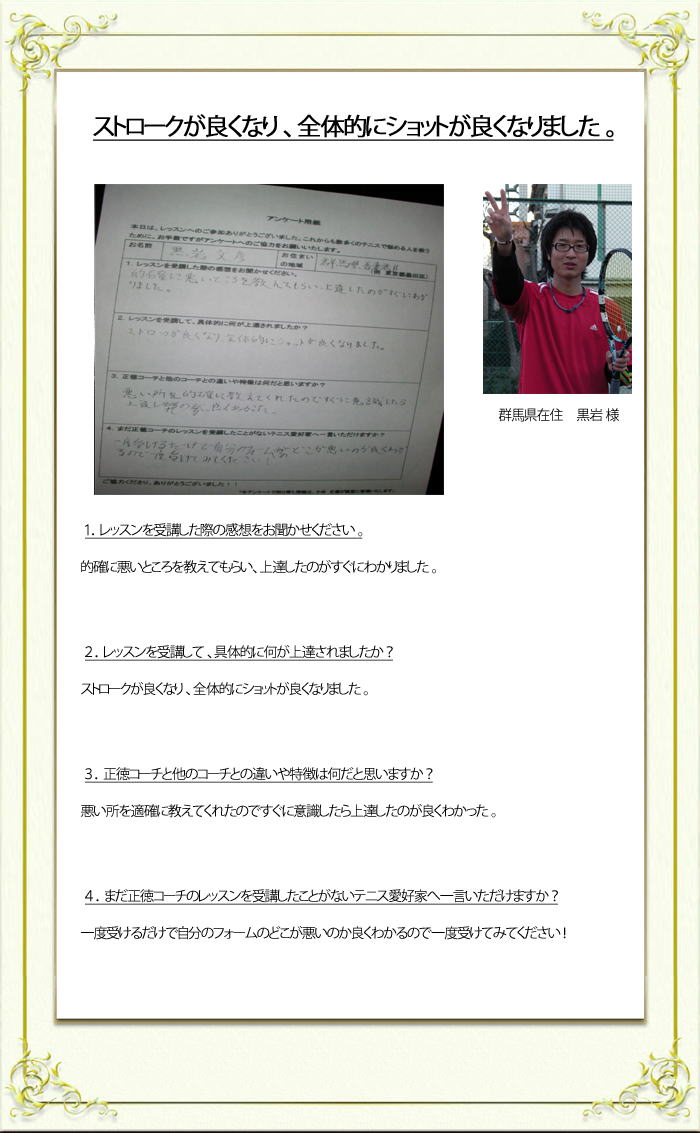 ストロークが良くなり、全体的にショットが良くなりました。
アンケート用紙
本日は、レッスンへのご参加ありがとうございました。これからも数多くのテニスで悩める人を救う
ために、お手数ですがアンケートへのご協力をお願いいたします。
お名前 黒岩 文彦 お住まいの地域 群馬県
1. レッスンを受講した際の感想をお聞かせください。
的確に悪いところを教えてもらい、上達したのがすぐにわか
りました。
2. レッスンを受講して、具体的に何が上達されましたか？
ストロークが良くなり、全体的にショットが良くなりました。
3. 正徳コーチと他のコーチとの違いや特徴は何だと思いますか？
悪い所を的確に教えてくれたのですぐに意識したら
上達したのが良くわかった。
4. まだ正徳コーチのレッスンを受講したことがないテニス愛好家へ一言いただけますか？
一度受けるだけで自分のフォームのどこが悪いのか良くわか
るので一度受けてみてください！
ご協力くださり、ありがとうございました！！
adidas
群馬県在住 黒岩 様
1. レッスンを受講した際の感想をお聞かせください。
的確に悪いところを教えてもらい、上達したのがすぐにわかりました。
２. レッスンを受講して、具体的に何が上達されましたか？
ストロークが良くなり、全体的にショットが良くなりました。
３. 正徳コーチと他のコーチとの違いや特徴は何だと思いますか？
悪い所を適確に教えてくれたのですぐに意識したら上達したのが良くわかった。
４. まだ正徳コーチのレッスンを受講したことがないテニス愛好家へ一言いただけますか？
一度受けるだけで自分のフォームのどこが悪いのか良くわかるので一度受けてみてください！